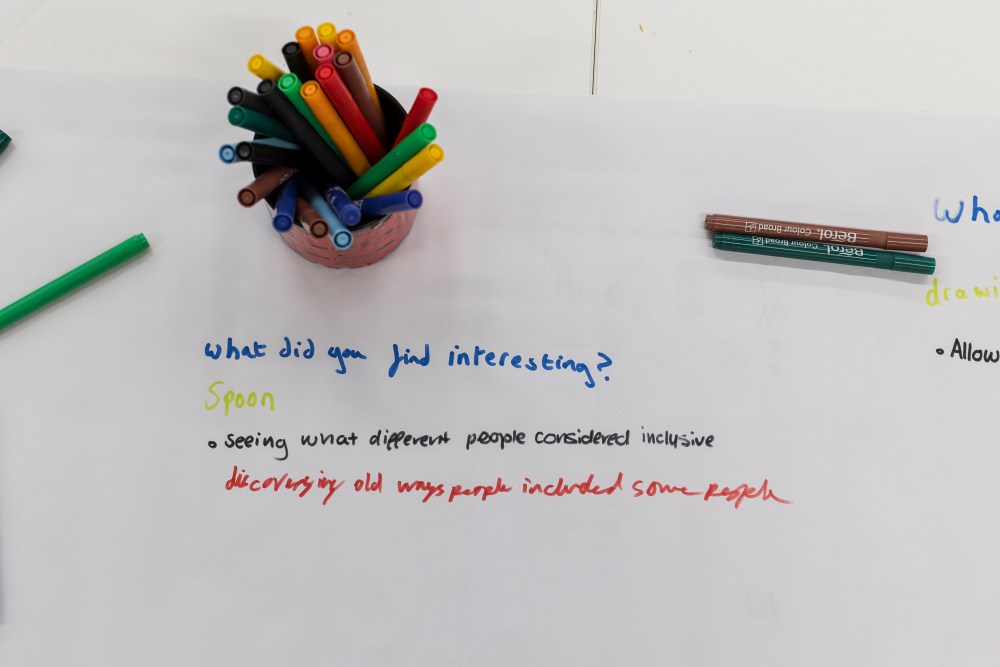 Berol. Colour Broad
Berol. Colour Broad
Who
what did you find interesting?
drawi
Spoon
• Allow
• seeing what different people considered inclusive
discovering old ways people included some people